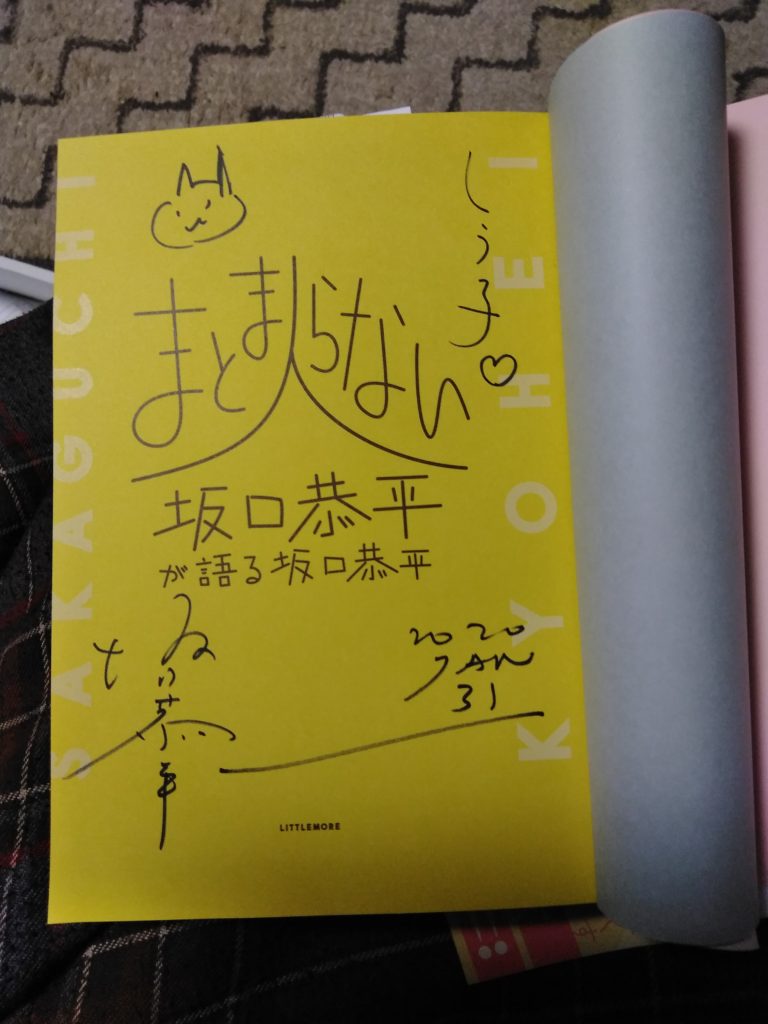 しう子♡
まとまらない人
坂口恭平
が語る坂口恭平
SAKAGUCHI
KYOHEI
坂口恭平
2020
JAN
31
LITTLEMORE